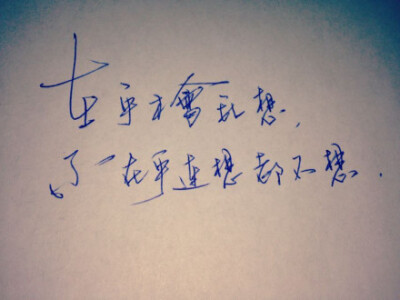 在乎才會乱想,
不在乎連想都不想.